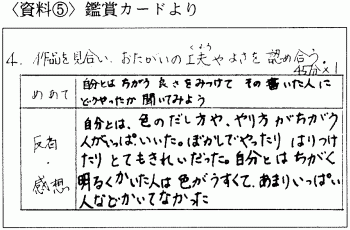 〈資料⑤〉鑑賞カードより
4. 作品を見合い、おたがいの工夫やよさを認め合う。
くふう
45分×1
めあて
自分とはちがう良さをみつけて その書いた人に
どうやったか聞いてみよう
反省・感想
自分とは、色のだし方や、やり方がちがう
人がいっぱいいた。ぼかしでやったり はりつけ
たり とてもきれいだった。自分とはちがく
明るくかいた人は色がうすくて、あまりいっぱい
人などかいてなかった